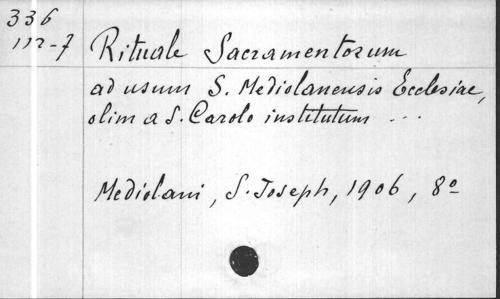 336
112-7
Rituale Sacramentorum
ad usum S. Mediolanensis Ecclesiae,
olim a S. Carolo institutum ...
Mediolani, S. Joseph, 1906, 8º